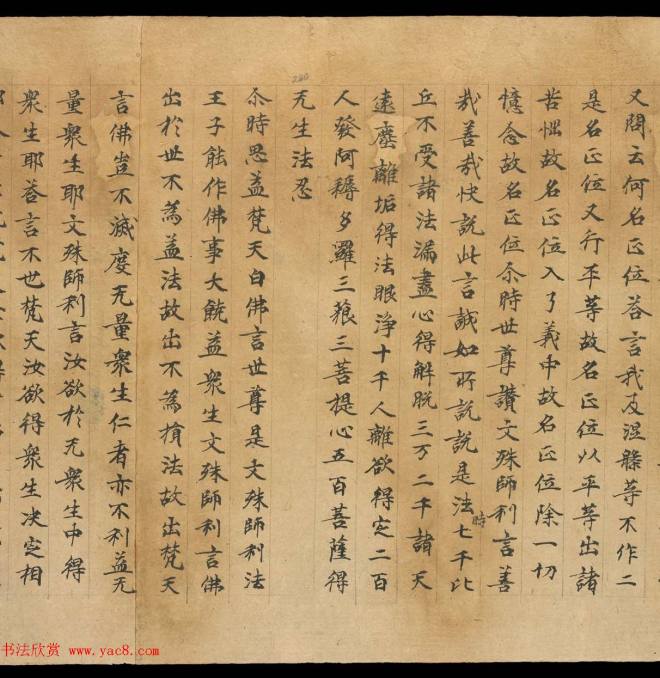 又問云何名正位荅言我及涅槃等不作二
是名正位又行平等故名正位以平等出諸
苦惱故名正位入了義中故名正位除一切
憶念故名正位尒時世尊讚文殊師利言善
㢤善㢤快說此言誠如所說說是法時七千比
丘不受諸法漏盡心得解脫三万二千諸天
遠塵離垢得法眼淨十千人離欲得定二百
人發阿耨多羅三藐三菩提心五百菩薩得
无生法忍
280
尒時思益梵天白佛言世尊是文殊師利法
王子能作佛事大饒益衆生文殊師利言佛
出於世不為益法故出不為損法故出梵天
言佛豈不滅度无量衆生仁者亦不利益无
量衆生耶文殊師利言汝欲於无衆生中得
衆生耶荅言不也梵天汝欲得衆生决定相
书法欣赏 www.yac8.com